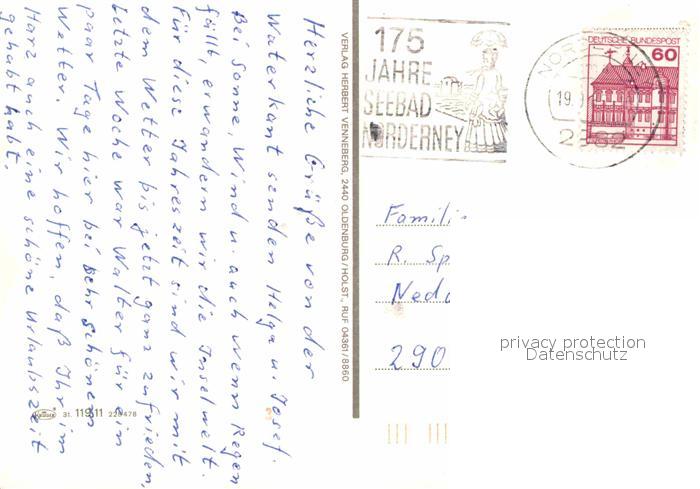 Herzliche Grüße von der
Waterkant senden Helga u. Josef.
Bei Sonne, Wind u. auch wenn Regen
fällt, erwandern wir die Inselwelt.
Für diese Jahreszeit sind wir mit
dem Wetter bis jetzt ganz zufrieden,
letzte Woche war Walter für ein
paar Tage hier bei sehr schönem
Wetter. Wir hoffen, daß Ihr im
Harz auch eine schöne Urlaubszeit
gehabt habt.
31. 119.11
VERLAG HERBERT VENNEBERG, 2440 OLDENBURG/HOLST., RUF 04361/8860
175
JAHRE
SEEBAD
NORDERNEY
DEUTSCHE BUNDESPOST
60
19.
2982
R. Sp
290
privacy protection
Datenschutz